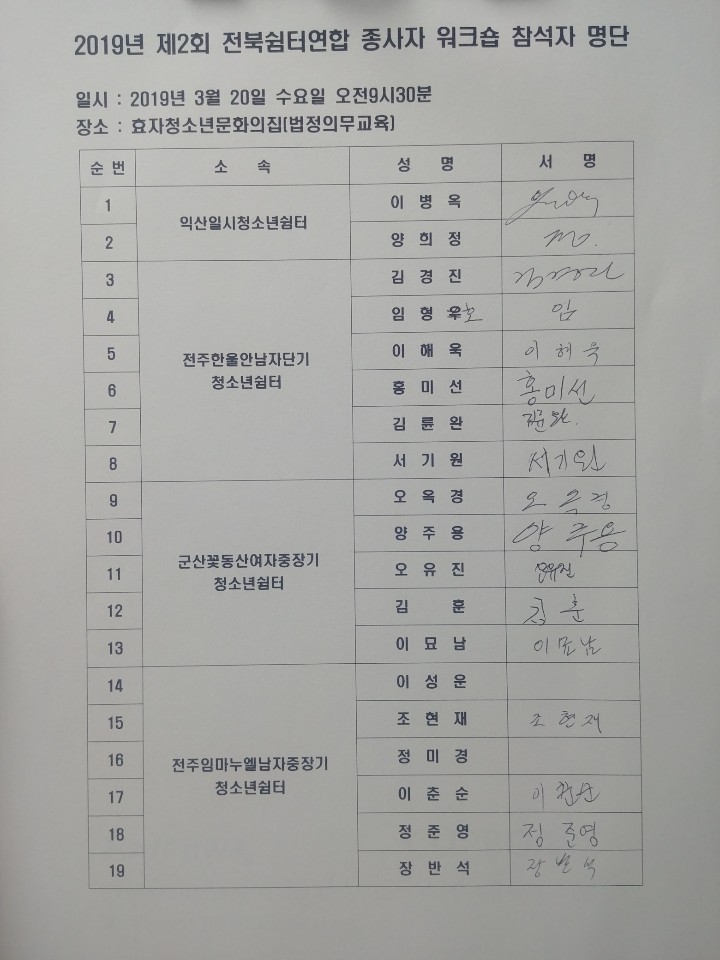 2019년 제2회 전북쉼터연합 종사자 워크숍 참석자 명단
일시 : 2019년 3월 20일 수요일 오전9시30분
장소 : 효자청소년문화의집(법정의무교육)
순 번 소 속 성 명 서 명
1 익산일시청소년쉼터 이 병 옥
2 양 희 정
3 전주한울안남자단기 청소년쉼터 김 경 진
4 임 형 우호 임
5 이 해 욱 이 해 욱
6 홍 미 선 홍미선
7 김 륜 완 김륜완
8 서 기 원 서기원
9 군산꽃동산여자중장기 청소년쉼터 오 옥 경 오 옥 경
10 양 주 용 양 주용
11 오 유 진 오유진
12 김 훈 김 훈
13 이 묘 남 이묘남
14 전주임마누엘남자중장기 청소년쉼터 이 성 운
15 조 현 재 조 현 재
16 정 미 경
17 이 춘 순 이춘순
18 정 준 영 정 준영
19 장 반 석 장 반 석